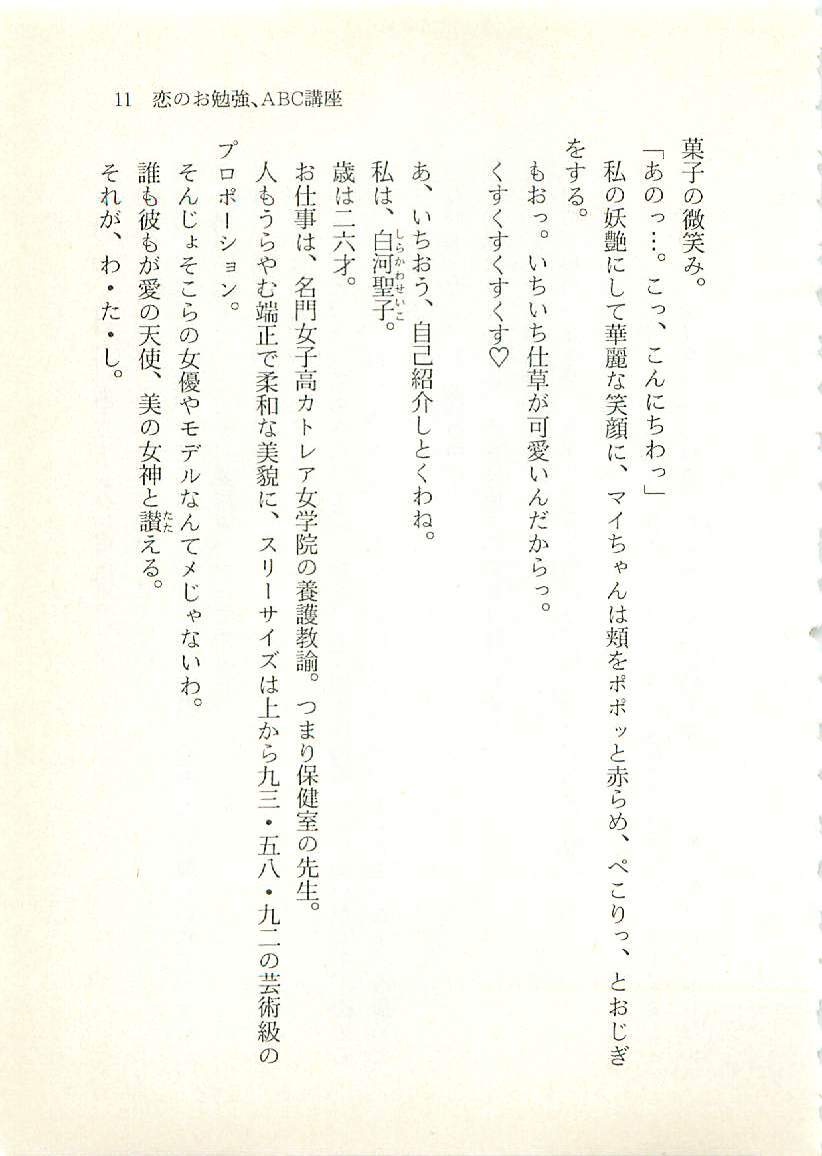 11　恋のお勉強、ABC講座
菓子の微笑み。
「あのっ…。こっ、こんにちわっ」
私の妖艶にして華麗な笑顔に、マイちゃんは頬をポポッと赤らめ、ぺこりっ、とおじぎ
をする。
もおっ。いちいち仕草が可愛いんだからっ。
くすくすくすくす♡
あ、いちおう、自己紹介しとくわね。
私は、白河聖子。
しらかわせいこ
歳は二六才。
お仕事は、名門女子高カトレア女学院の養護教諭。つまり保健室の先生。
人もうらやむ端正で柔和な美貌に、スリーサイズは上から九三・五八・九二の芸術級の
プロポーション。
そんじょそこらの女優やモデルなんてメじゃないわ。
誰も彼もが愛の天使、美の女神と讃える。
たた
それが、わ・た・し。